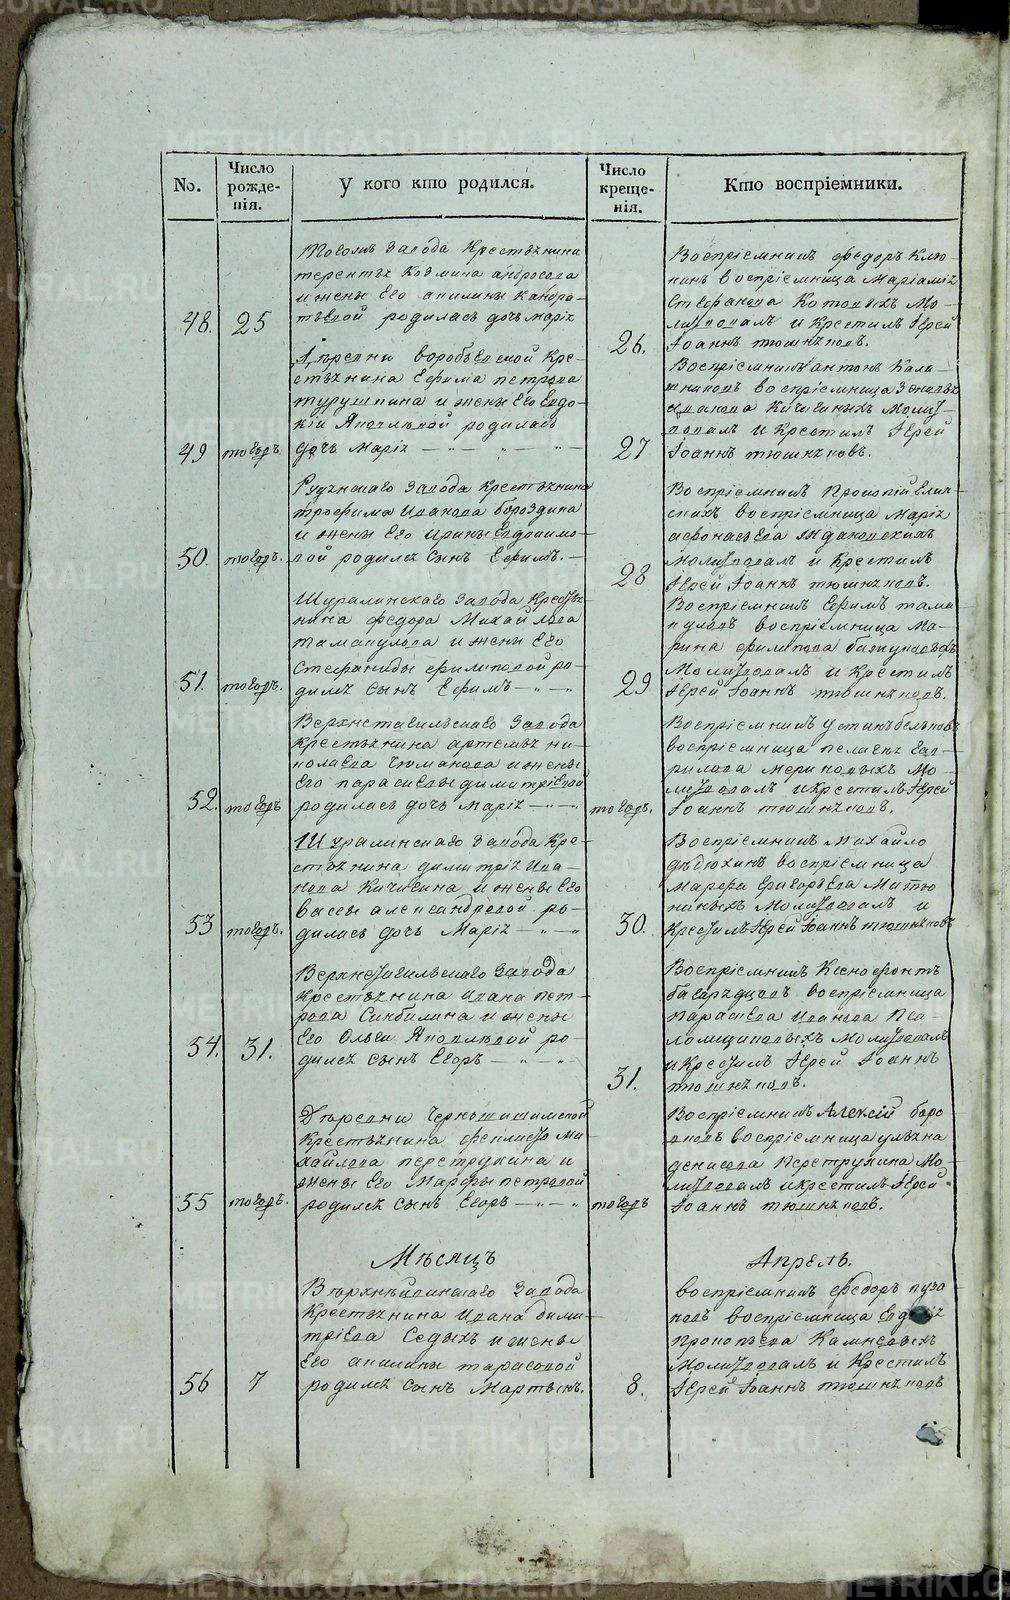 No.
Число рожде-нія.
У кого кто родился.
Число креще-нія.
Кто воспріемники.
48. 25
Завода Крестьянина
Козмина
и жены Его
родилась дочь Марія
26.
Воспріемникъ Федоръ
воспріемница
Стефанова
и Крестилъ Іерей
Іоаннъ Тюшняковъ.
49 тогожъ
Деревни Воробьевской Кре-
стьянина Ефима Петрова
и жены Его Евдо-
кіи Яковлевой родилась
дочь Марія
27
Воспріемникъ Антонъ Кала-
шниковъ воспріемница
Иванова Кичигиныхъ Молит-
вовалъ и Крестилъ Іерей
Іоаннъ Тюшняковъ.
50. тогожъ.
Рудянскаго Завода Крестьянина
Трофима Иванова Бороздина
и жены Его Ирины Евдокимо-
вой родился Сынъ Ефимъ.
28
Воспріемникъ Прокопій
воспріемница Марія
Афонасьева
Молитвовалъ и Крестилъ
Іерей Іоаннъ Тюшняковъ.
51. тогожъ.
Шуралинскаго Завода Крестья-
нина Федора Михайлова
Таманулова и жены Его
Стефаниды Филиповой ро-
дился Сынъ Ефимъ
29
Воспріемникъ Ефимъ Тама-
нуловъ воспріемница Ма-
рина Филипова
Молитвовалъ и Крестилъ
Іерей Іоаннъ Тюшняковъ.
52. тогожъ
Верхнетагильскаго Завода
Крестьянина Артемья Ни-
колаева Чюмакова и жены
Его Парасковьи Димитріевой
родилась дочь Марія
тогожъ.
Воспріемникъ Устинъ
воспріемница Пелагея Гав-
рилова Мо-
литвовалъ и крестилъ Іерей
Іоаннъ Тюшняковъ.
53 тогожъ.
Шуралинскаго Завода Кре-
стьянина Димитрія Ива-
нова Кичигина и жены Его
Вассы Александровой ро-
дилась дочь Марія
30.
Воспріемникъ Михайло
Дѣдюхинъ воспріемница
Марфа Григорьева Матю-
ниныхъ Молитвовалъ и
Крестилъ Іерей Іоаннъ Тюшняковъ
54. 31.
Верхнетагильскаго Завода
Крестьянина Ивана Пет-
рова и жены
Его Ольги Яковлевой ро-
дился сынъ Егоръ
31.
Воспріемникъ Ксенофонтъ
воспріемница
Параскева Иванова
Молитвовалъ
и Крестилъ Іерей Іоаннъ
Тюшняковъ.
55 тогожъ.
Деревни Черношишимской
Крестьянина Феклиста Ми-
хайлова Перетрухина и
жены Его Марфы Петровой
родился Сынъ Егоръ
тогожъ
Воспріемникъ Алексій
воспріемница Ульяна
Денисова Перетрухина Мо-
литвовалъ и крестилъ Іерей
Іоаннъ Тюшняковъ.
Мѣсяцъ Апрель.
56 7
Верхнейвинскаго Завода
Крестьянина Ивана Дими-
тріева Седыхъ и жены
Его Акилины Тарасовой
родился Сынъ Мартынъ.
8.
воспріемникъ Федоръ Пуза-
новъ воспріемница
Прокопьева
Молитвовалъ и Крестилъ
Іерей Іоаннъ Тюшняковъ
METRIKI.GASO-URAL.RU